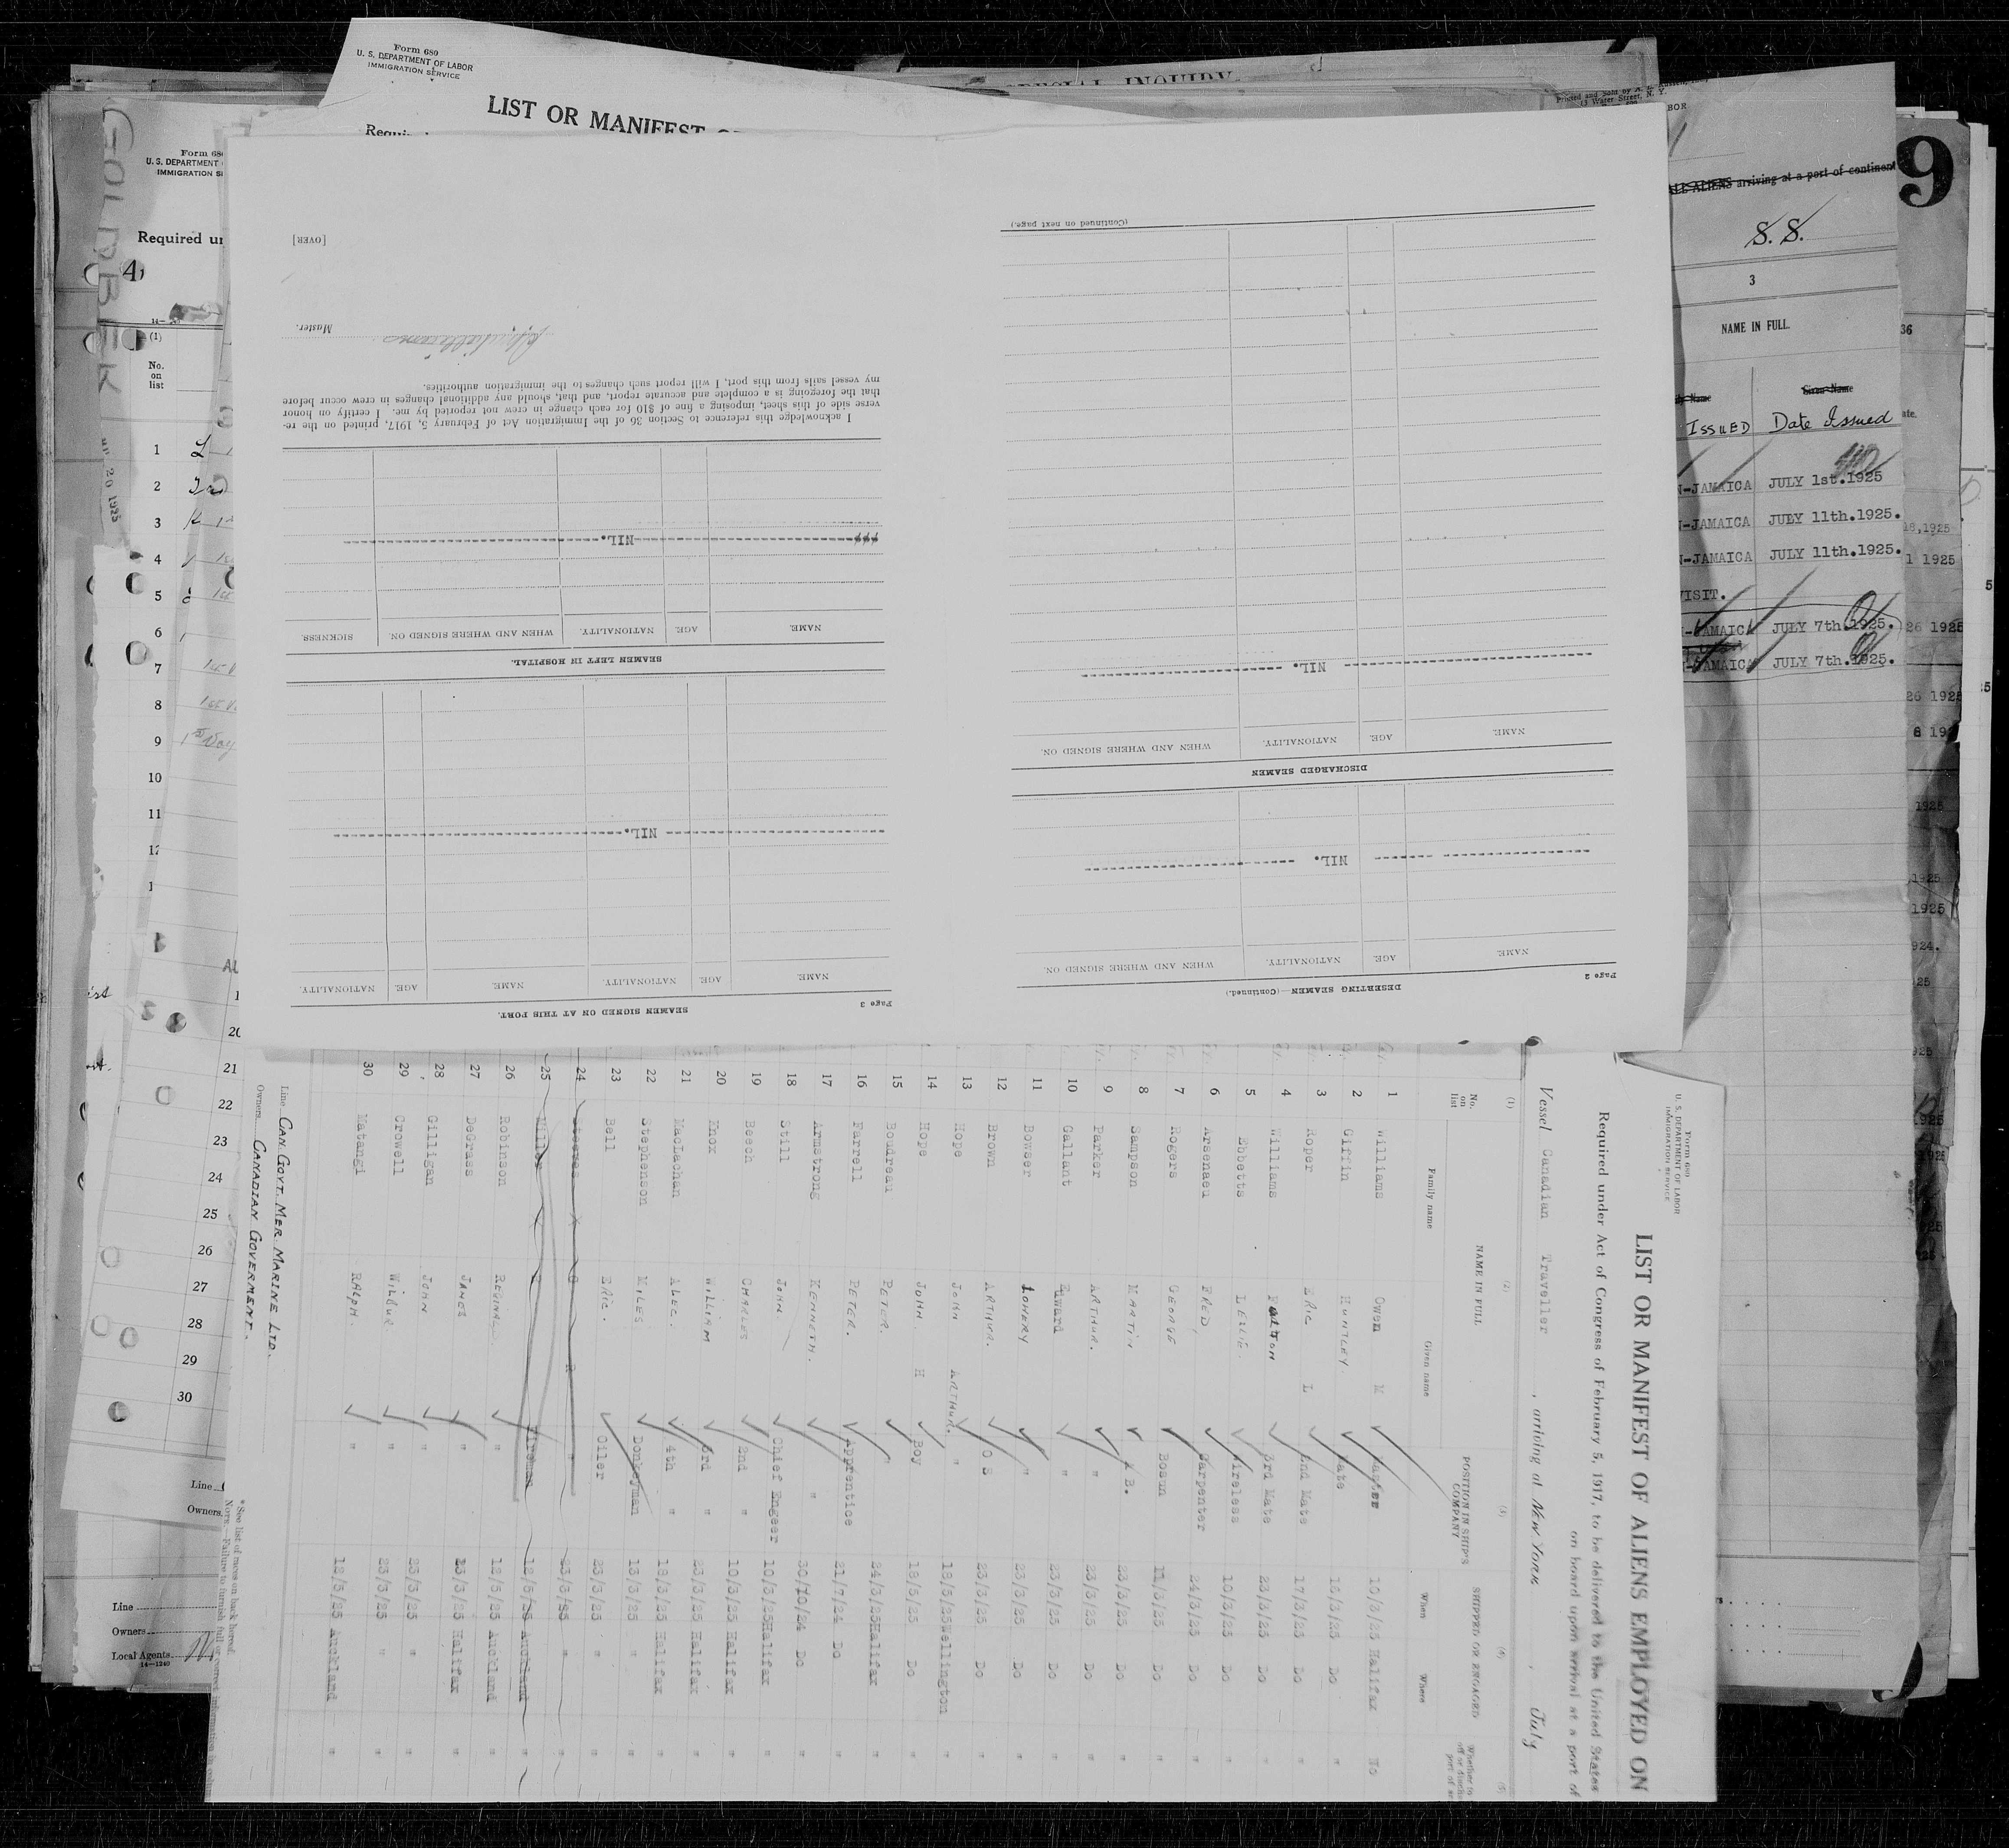 Form 680
U. S. DEPARTMENT OF LABOR
IMMIGRATION SERVICE
LIST OR MANIFEST
SPECIAL INQUIRY
GOLDBECK
U. S. DEPARTMENT
Required
4
(1)
No.
on
list
1
2
3
4
5
6
7
8
9
10
11
20
21
22
23
24
25
26
27
28
29
30
Line
Owners
Line
Owners
Local Agents
14—1240
9
ALL ALIENS arriving at a port of continent
S. S.
3
NAME IN FULL.
Given Name
ISSUED Date Issued
JAMAICA JULY 1st.1925
JAMAICA JULY 11th.1925.
JAMAICA JULY 11th.1925.
VISIT.
JAMAICA JULY 7th.1925.
JAMAICA JULY 7th.1925.
Page 2
DESERTING SEAMEN—(Continued.)
NAME. AGE. NATIONALITY. WHEN AND WHERE SIGNED ON.
NIL.
DISCHARGED SEAMEN
NAME. AGE. NATIONALITY. WHEN AND WHERE SIGNED ON.
NIL.
(Continued on next page.)
Page 3
SEAMEN SIGNED ON AT THIS PORT.
NAME. AGE. NATIONALITY. NAME. AGE. NATIONALITY.
NIL.
SEAMEN LEFT IN HOSPITAL.
NAME. AGE. NATIONALITY. WHEN AND WHERE SIGNED ON. SICKNESS.
NIL.
I acknowledge this reference to Section 36 of the Immigration Act of February 5, 1917, printed on the re-
verse side of this sheet, imposing a fine of $10 for each change in crew not reported by me. I certify on honor
that the foregoing is a complete and accurate report, and that, should any additional changes in crew occur before
my vessel sails from this port, I will report such changes to the immigration authorities.
Master.
[OVER]
Form 680
U. S. DEPARTMENT OF LABOR
IMMIGRATION SERVICE
LIST OR MANIFEST OF ALIENS EMPLOYED ON
Required under Act of Congress of February 5, 1917, to be delivered to the United States
on board upon arrival at a port of
Vessel Canadian Traveller, arriving at New York, July
(1) (2) (3) (4) (5)
No. on list NAME IN FULL POSITION IN SHIP'S COMPANY SHIPPED OR ENGAGED
Family name Given name When Where
1 Williams Owen M Master 10/3/25 Halifax No
2 Giffin HUNTLEY Mate 16/3/25 Do "
3 Roper ERIC L 2nd Mate 17/3/25 Do "
4 Williams FULTON 3rd Mate 23/3/25 Do "
5 Ebbetts LESLIE. Wireless 10/3/25 Do "
6 Arsenaeu FRED Carpenter 24/3/25 Do "
7 Rogers GEORGE Bosun 11/3/25 Do "
8 Sampson MARTIN A B. 23/3/25 Do "
9 Parker ARTHUR. " 23/3/25 Do "
10 Gallant Edward " 23/3/25 Do "
11 Bowser LOWERY " 23/3/25 Do "
12 Brown ARTHUR. O S 23/3/25 Do "
13 Hope JOHN ARTHUR. " 18/5/25 Wellington "
14 Hope JOHN H Boy 18/5/25 Do "
15 Boudreau PETER. " 24/3/25 Halifax "
16 Farrell PETER. Apprentice 21/7/24 Do "
17 Armstrong KENNETH. " 30/10/24 Do "
18 Still JOHN Chief Engeer 10/3/25 Halifax "
19 Beech CHARLES 2nd " 10/3/25 Halifax "
20 Knox WILLIAM 3rd " 23/3/25 Halifax "
21 MacLachan ALEC. 4th " 18/3/25 Halifax "
22 Stephenson MILES Donkeyman 13/3/25 " "
23 Bell ERIC. Oiler 23/3/25 " "
24 " 23/3/25 " "
25 Miller Fireman 12/5/25 Auckland "
26 Robinson REGINALD " 12/5/25 Auckland "
27 DeGrass JAMES " 23/3/25 Halifax "
28 Gilligan JOHN " 23/3/25 " "
29 Crowell WILBUR. " 23/3/25 " "
30 Matangi RALPH " 12/5/25 Auckland "
Line CAN. GOVT. MER. MARINE LTD.
Owners CANADIAN GOVERNMENT.
* See list of races on back hereof.